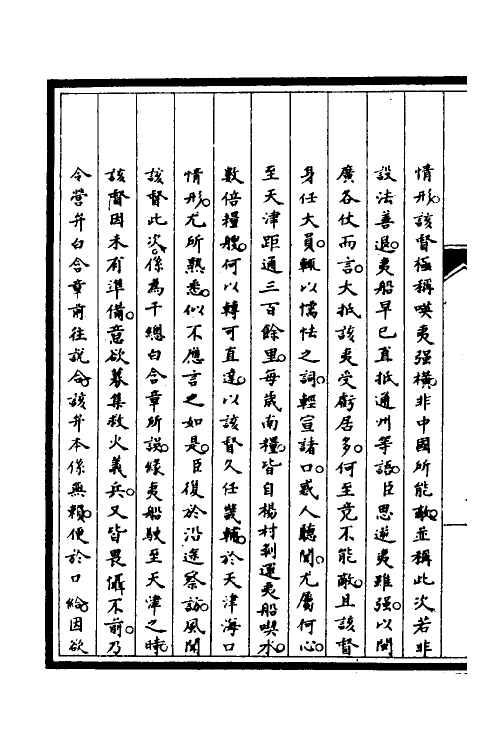 情形。該督極稱㗸夷强橫。非中國所能敵。並稱此次若非
設法善退。夷船早已直抵通州等語。臣思逆夷雖强。以閩
廣各仗而言。大抵該夷受虧居多。何至竟不能敵。且該督
身任大員。輒以懦怯之詞。輕宣諸口。惑人聽聞。尤屬何心。
至天津距通三百餘里。每歲南糧。皆自楊村剝運。夷船喫水。
數倍糧艘。何以轉可直達。以該督久任畿輔。於天津海口
情形。尤所熟悉。似不應言之如是。臣復於沿途察訪。風聞
該督此次。係為千總白含章所誤。緣夷船駛至天津之時。
該督因未有準備。意欲募集救火義兵。又皆畏懾不前。乃
令營弁白含章前往說合。該弁本係無賴。便於口給。因欲